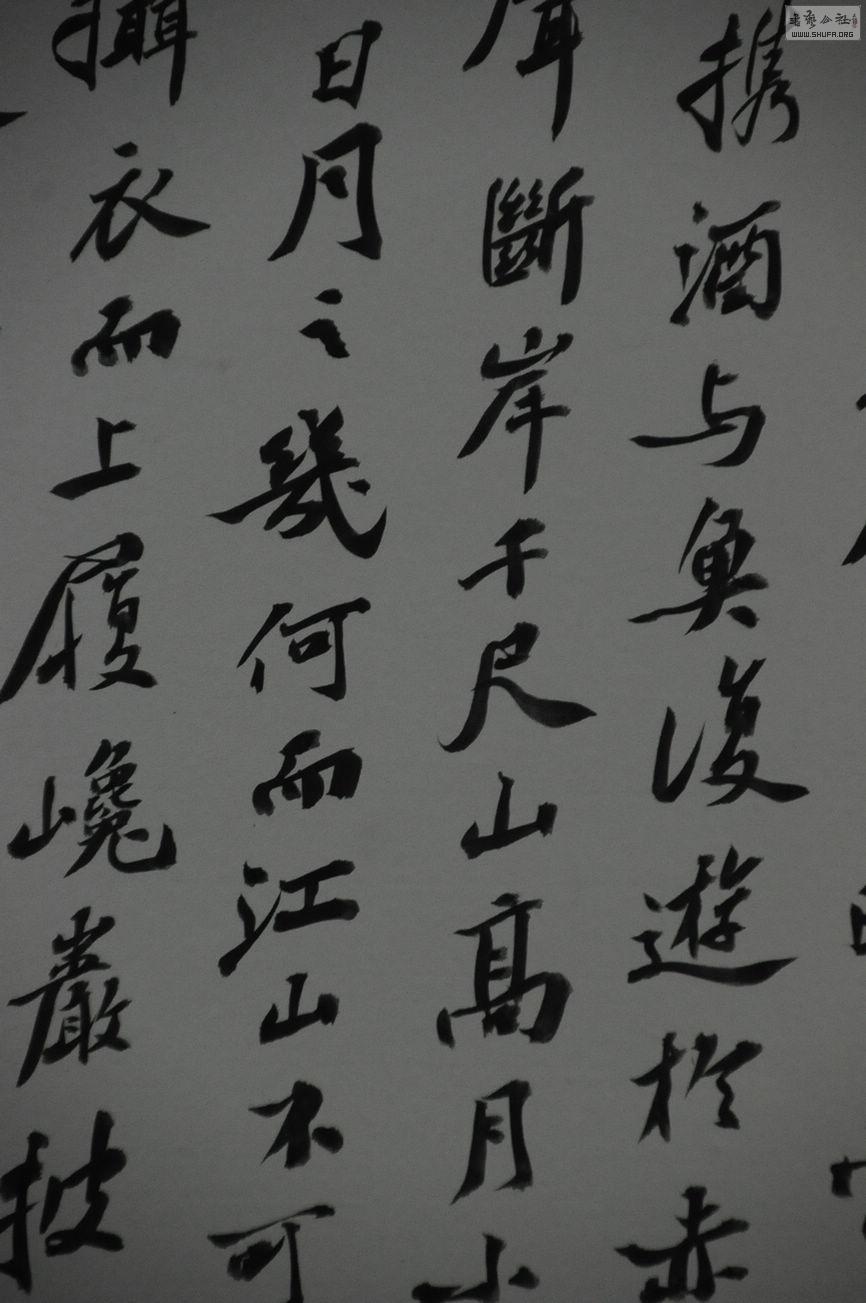 携酒与魚復遊於赤
聲斷岸千尺山高月小
日月之幾何而江山不可
攝衣而上履巉巖披
書藝公社
WWW.SHUFA.ORG